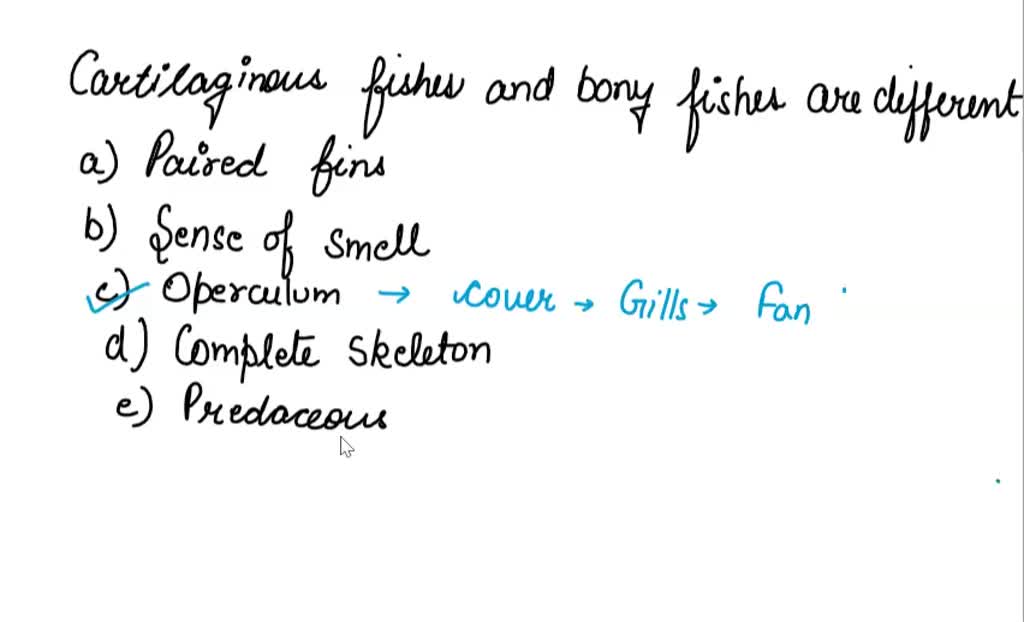 Cartilaginous fishes and bony fishes are different
a) Paired fins
b) Sense of smell
c) Operculum → cover → Gills → Fan
d) Complete skeleton
e) Predaceous